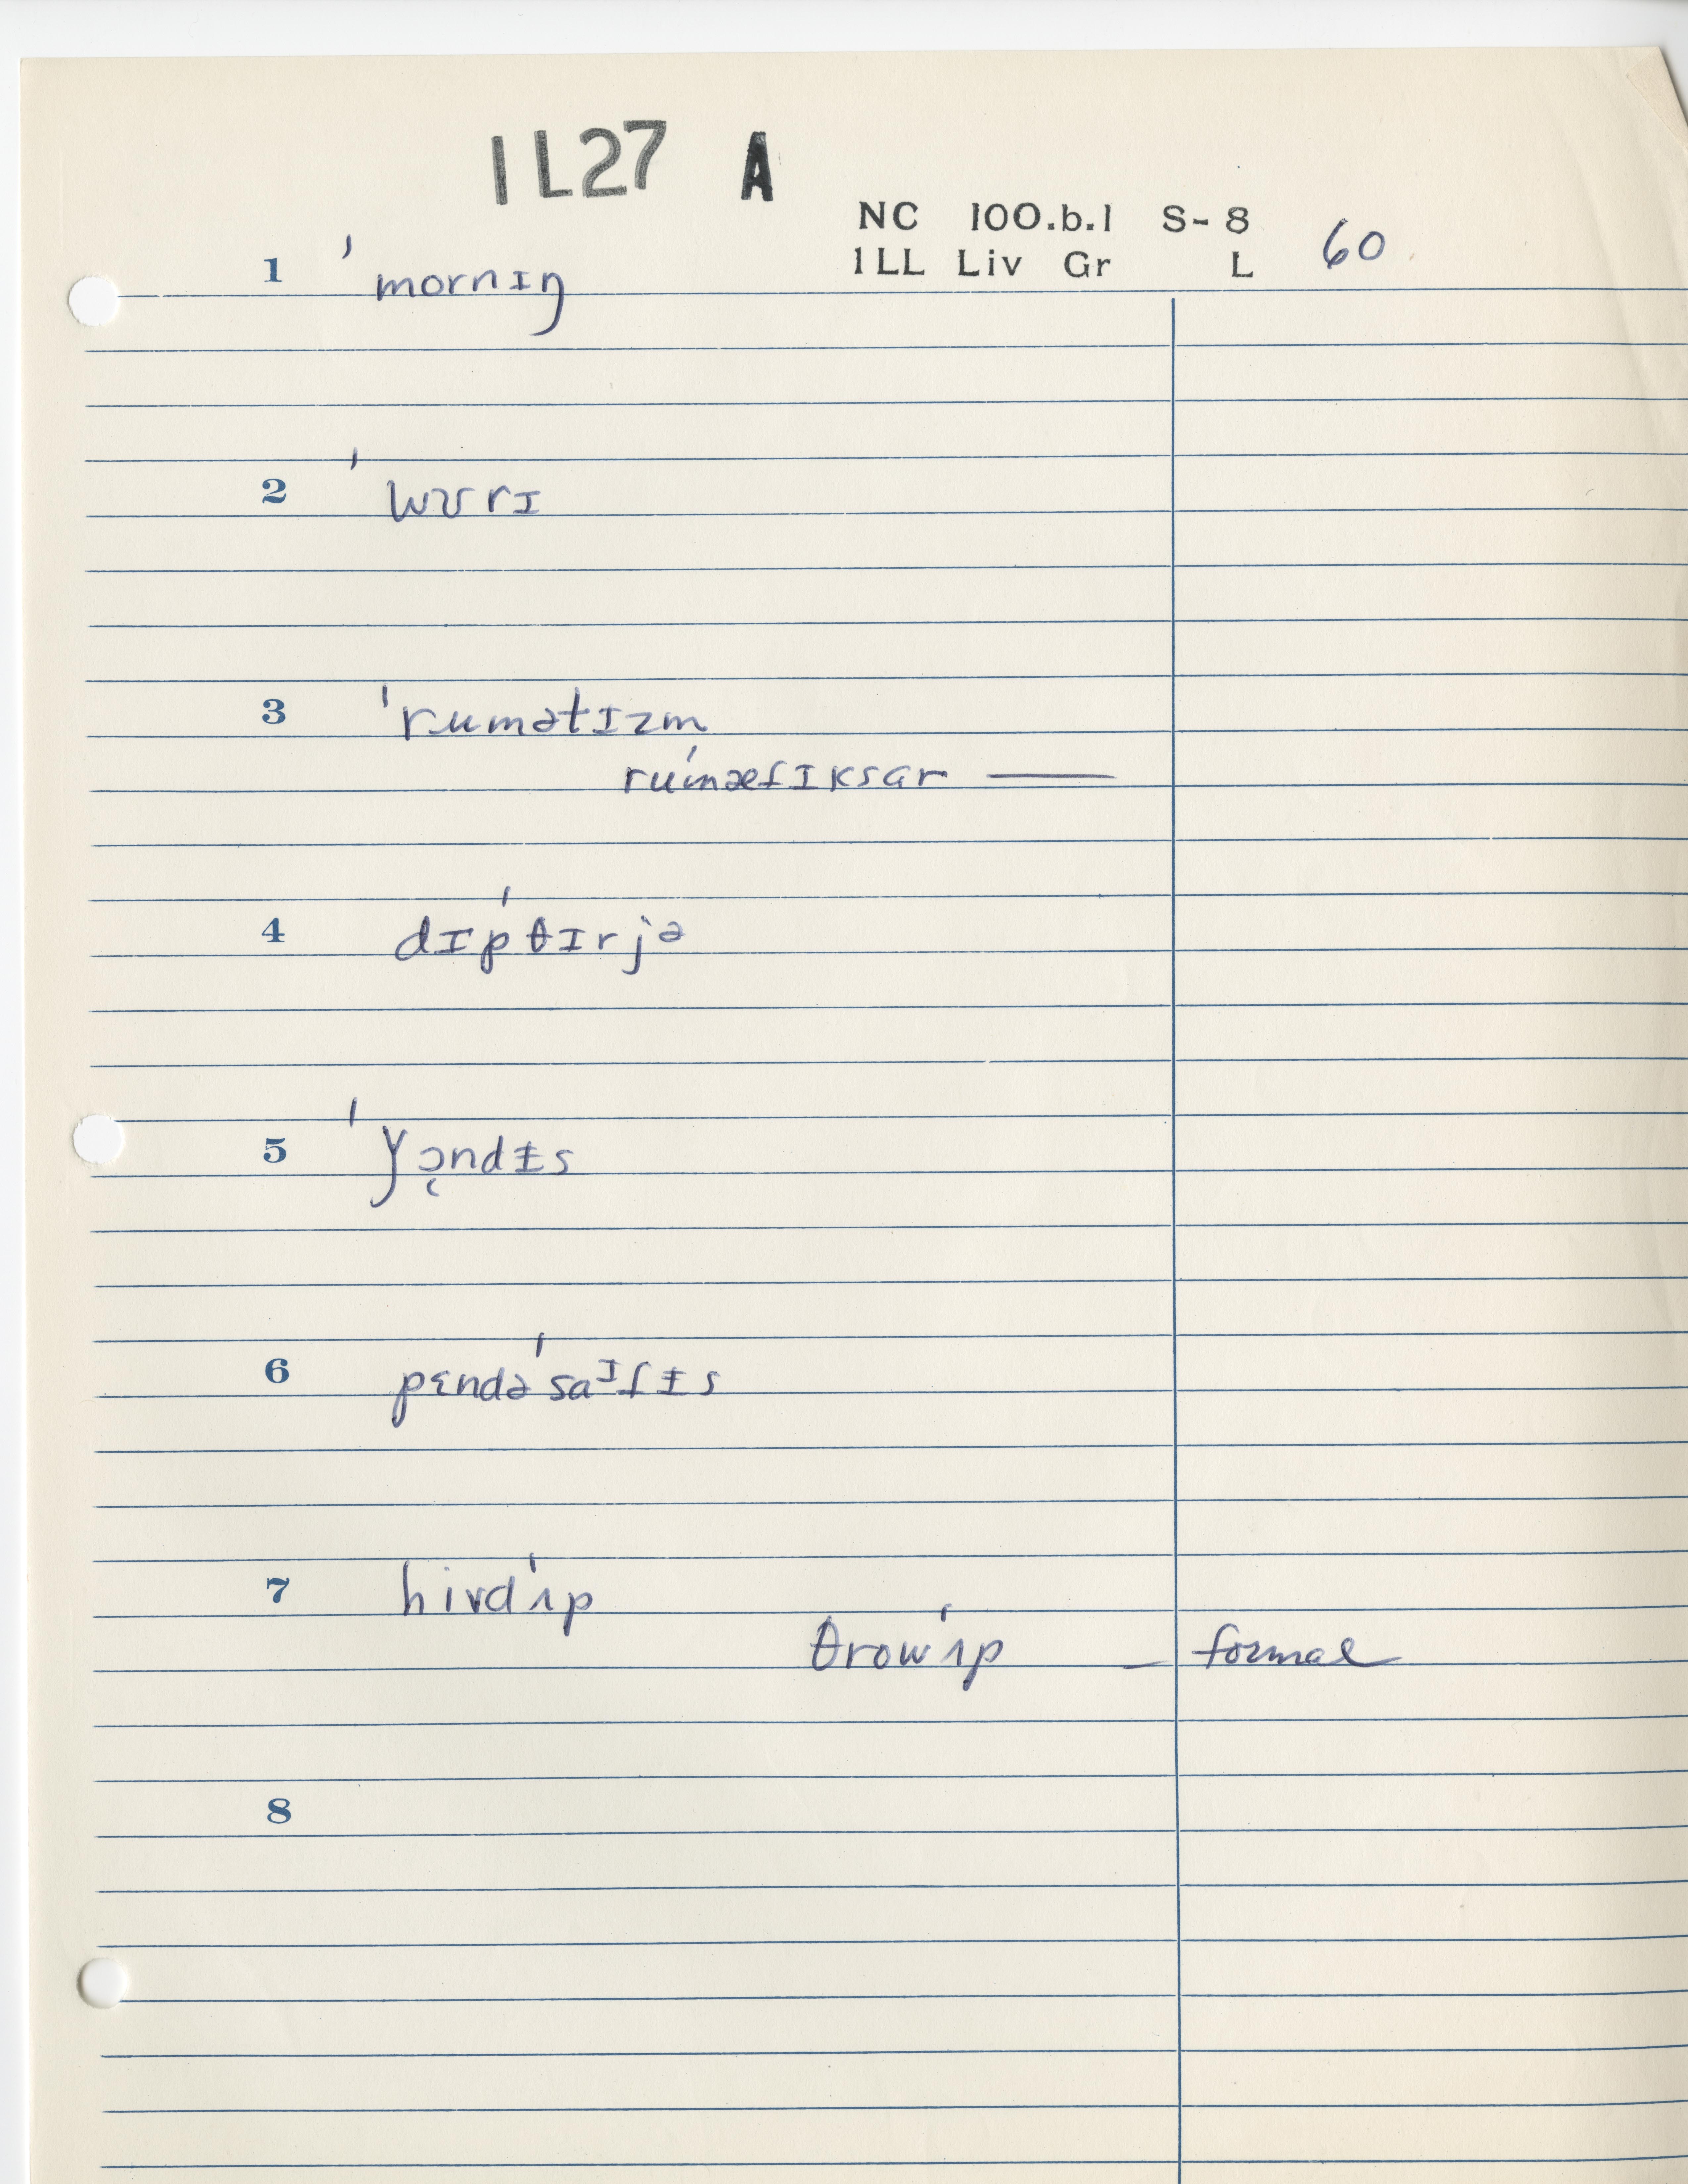 1L27 A
NC 100.b.1 S-8
1LL Liv Gr L 60
1 ˈmornɪŋ
2 ˈwʊrɪ
3 ˈrumətɪzm
ruˈmæfɪksar —
4 dɪpˈθɪrjə
5 ˈyɔ̜ndᵻs
6 pɛndəˈsaᴵfᵻs
7 hivdˈʌp
θrowˈʌp – formal
8